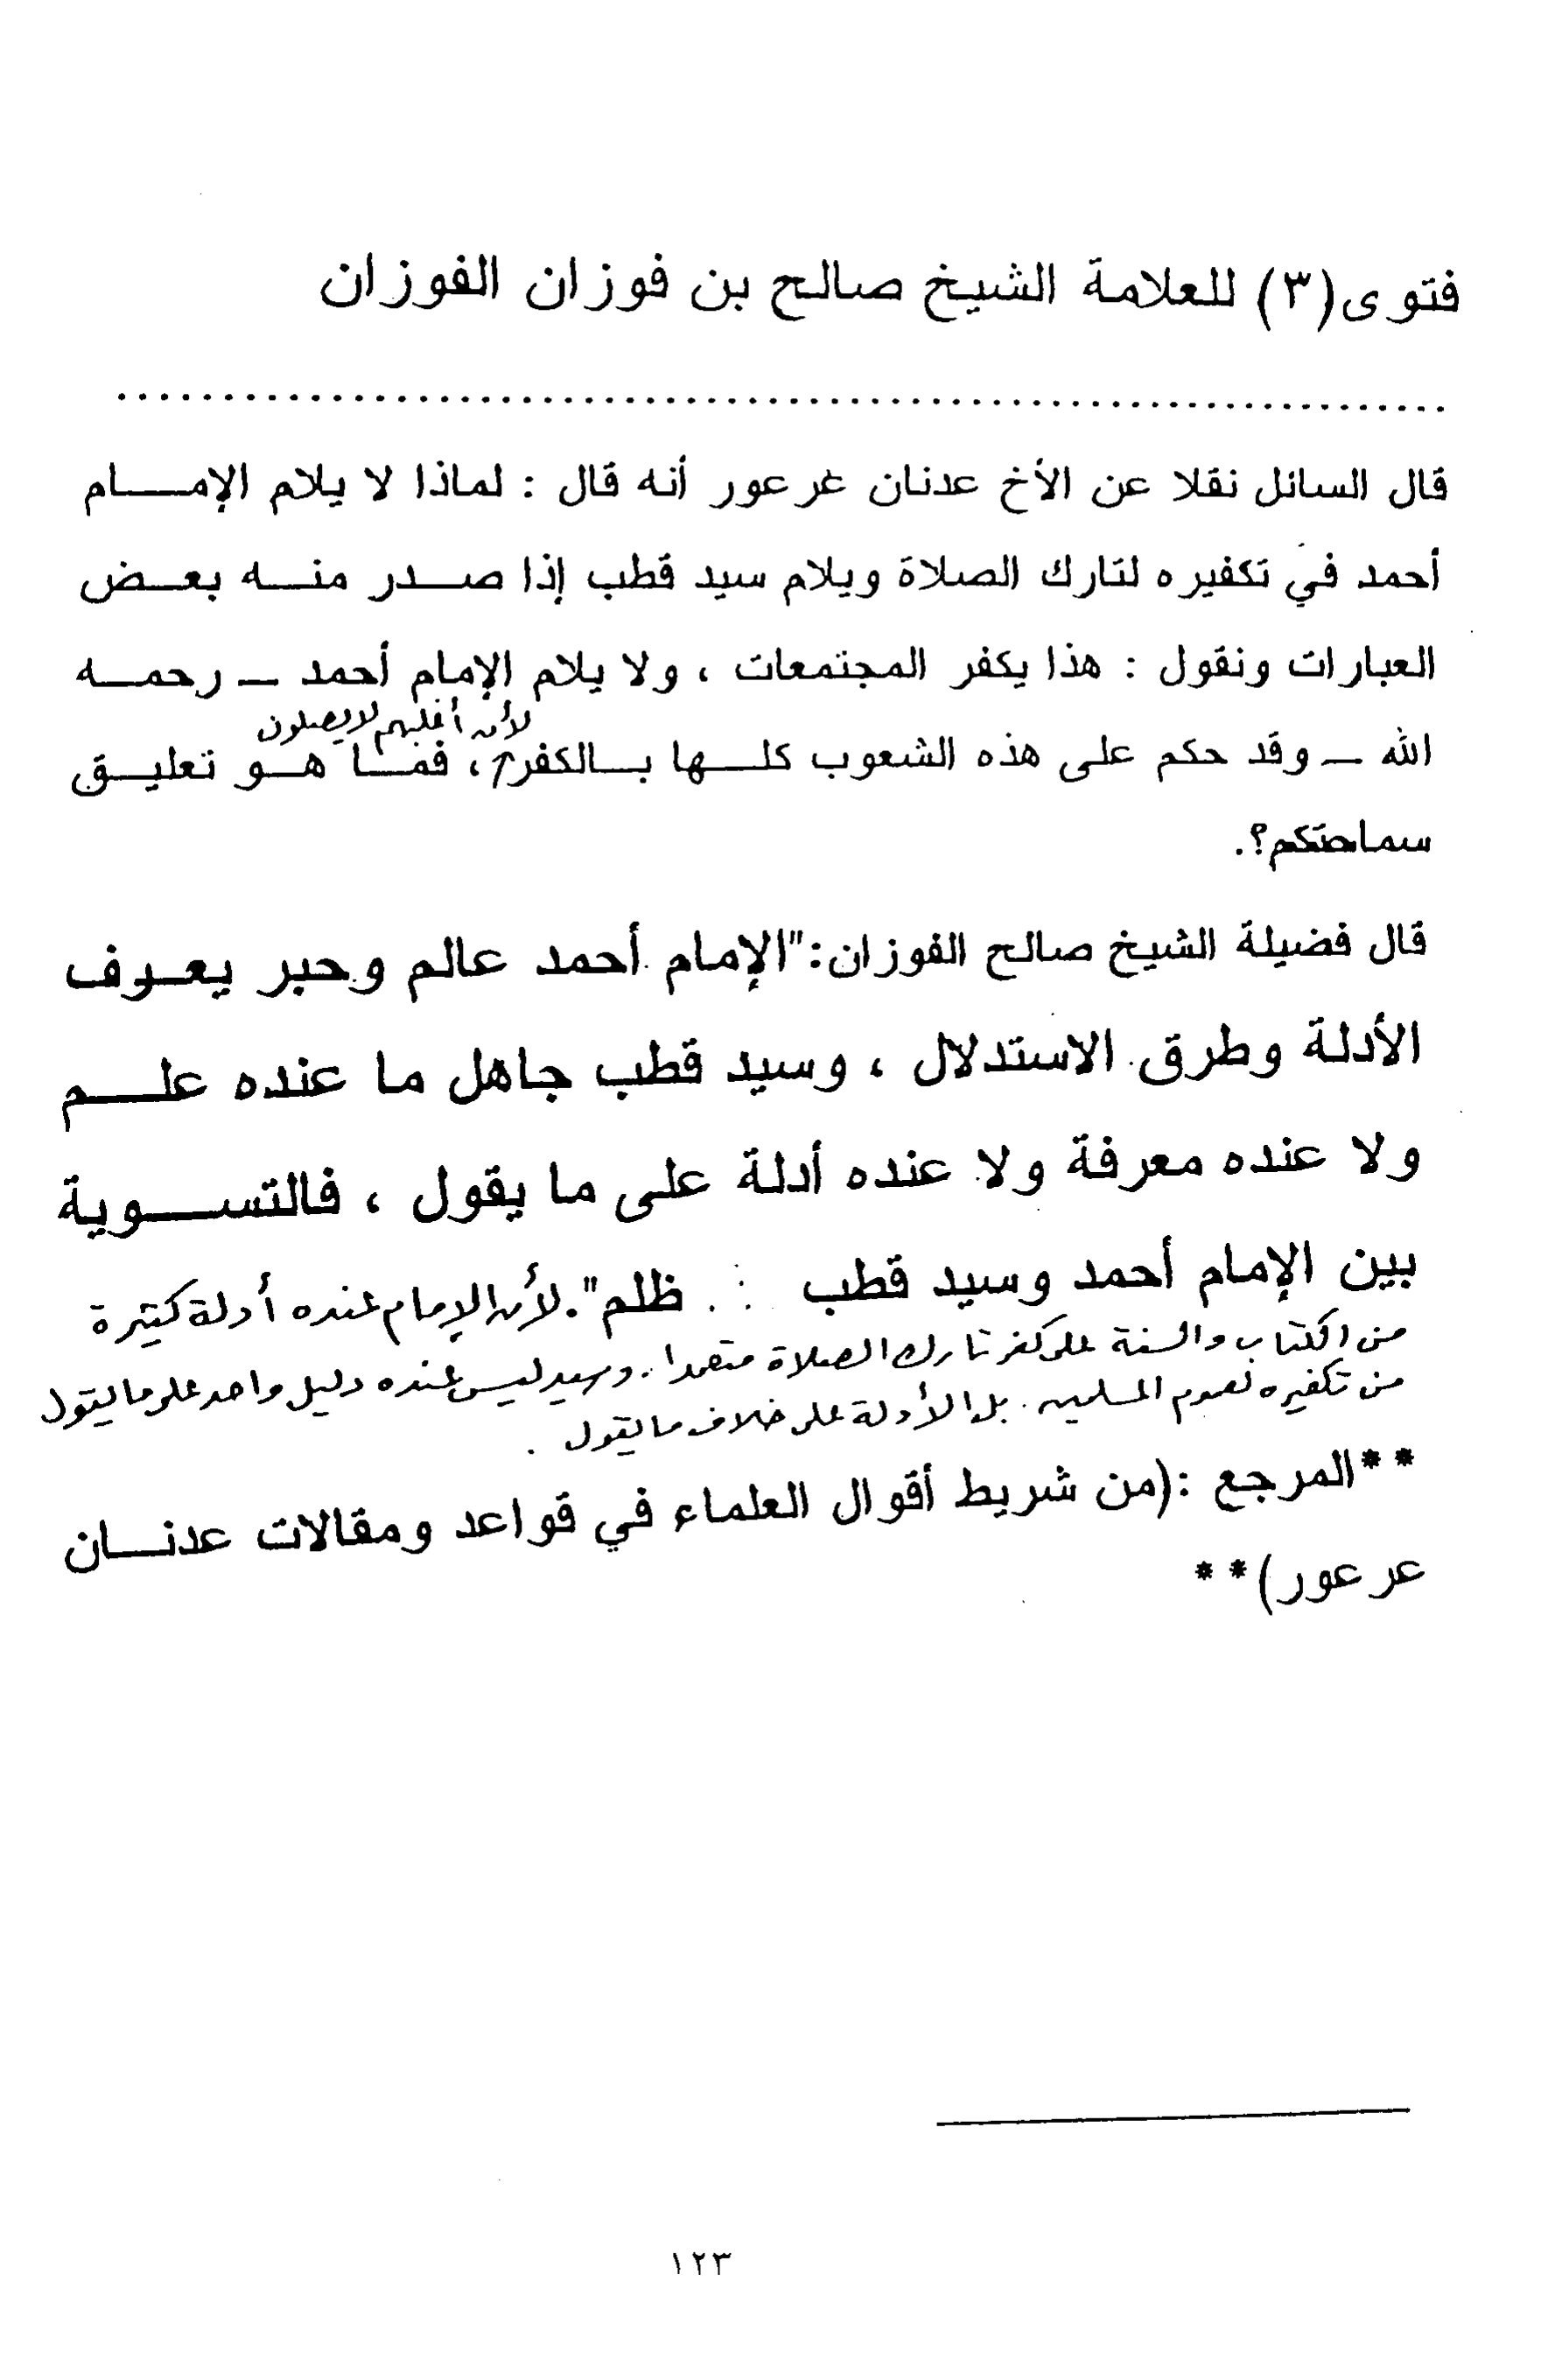 فتوى(٣) للعلامة الشيخ صالح بن فوزان الفوزان
................................................................
قال السائل نقلا عن الأخ عدنان غرعور أنه قال : لماذا لا يلام الإمـــام
أحمد في تكفيره لتارك الصلاة ويلام سيد قطب إذا صـــدر منـــه بعــض
العبارات ونقول : هذا يكفر المجتمعات ، ولا يلام الإمام أحمد ــ رحمـــه
لأن أغلبهم لا يصلون
الله ــ وقد حكم على هذه الشعوب كلـــها بـــالكفر ، فمـــا هـــو تعليـــق
سماحتكم؟.
قال فضيلة الشيخ صالح الفوزان:"الإمام أحمد عالم وحبر يعـرف
الأدلة وطرق الاستدلال ، وسيد قطب جاهل ما عنده علـــم
ولا عنده معرفة ولا عنده أدلة على ما يقول ، فالتســـوية
بين الإمام أحمد وسيد قطب ظلم". لأن الإمام عنده أدلة كثيرة
من الكتاب والسنة على كفر تارك الصلاة متعمدا . وسيد ليس عنده دليل واحد على ما يقول
من تكفيره لعموم المسلمين . بل الأدلة على خلاف ما يقول .
**المرجع :(من شريط أقوال العلماء في قواعد ومقالات عدنـــان
عرعور)**
١٢٣